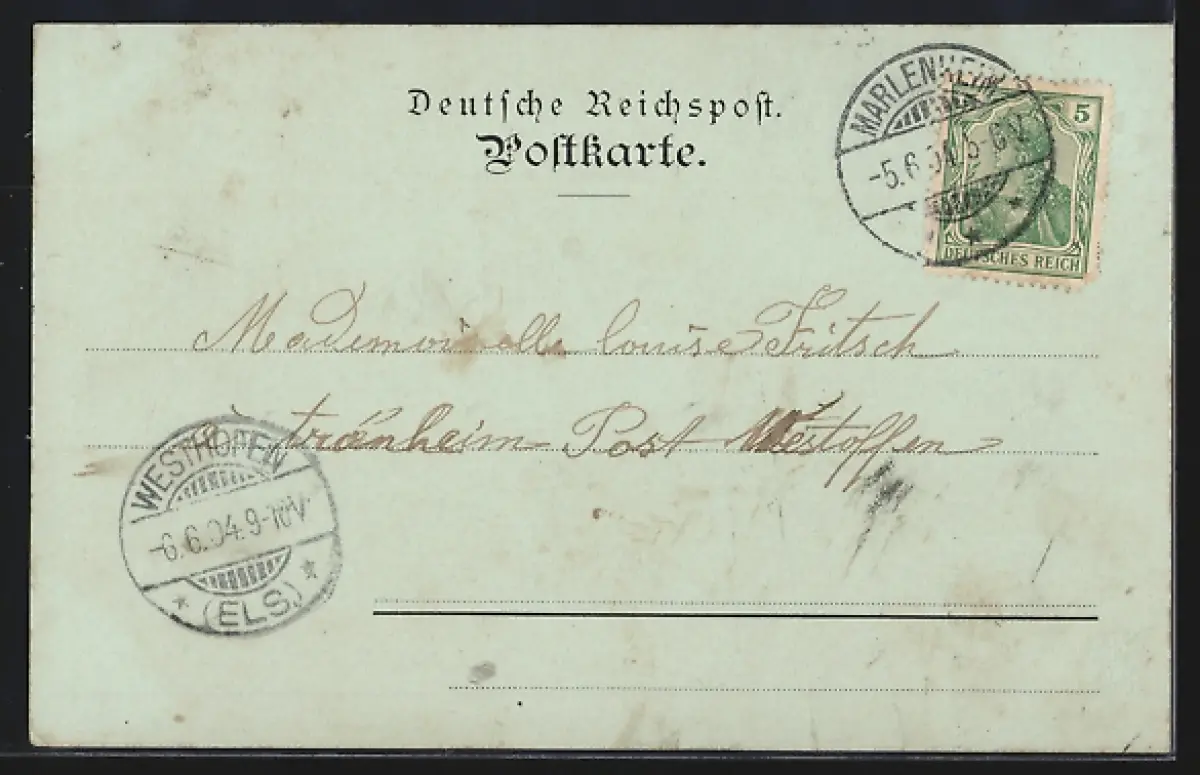 Deutsche Reichspost.
Postkarte.
MARLENHEIM
-5.6.04.5-6V.
5
DEUTSCHES REICH
Mademoiselle louise Fritsch
à tränheim Post Westoffen
WESTHOFEN
-6.6.04.9-10V.
(ELS.)